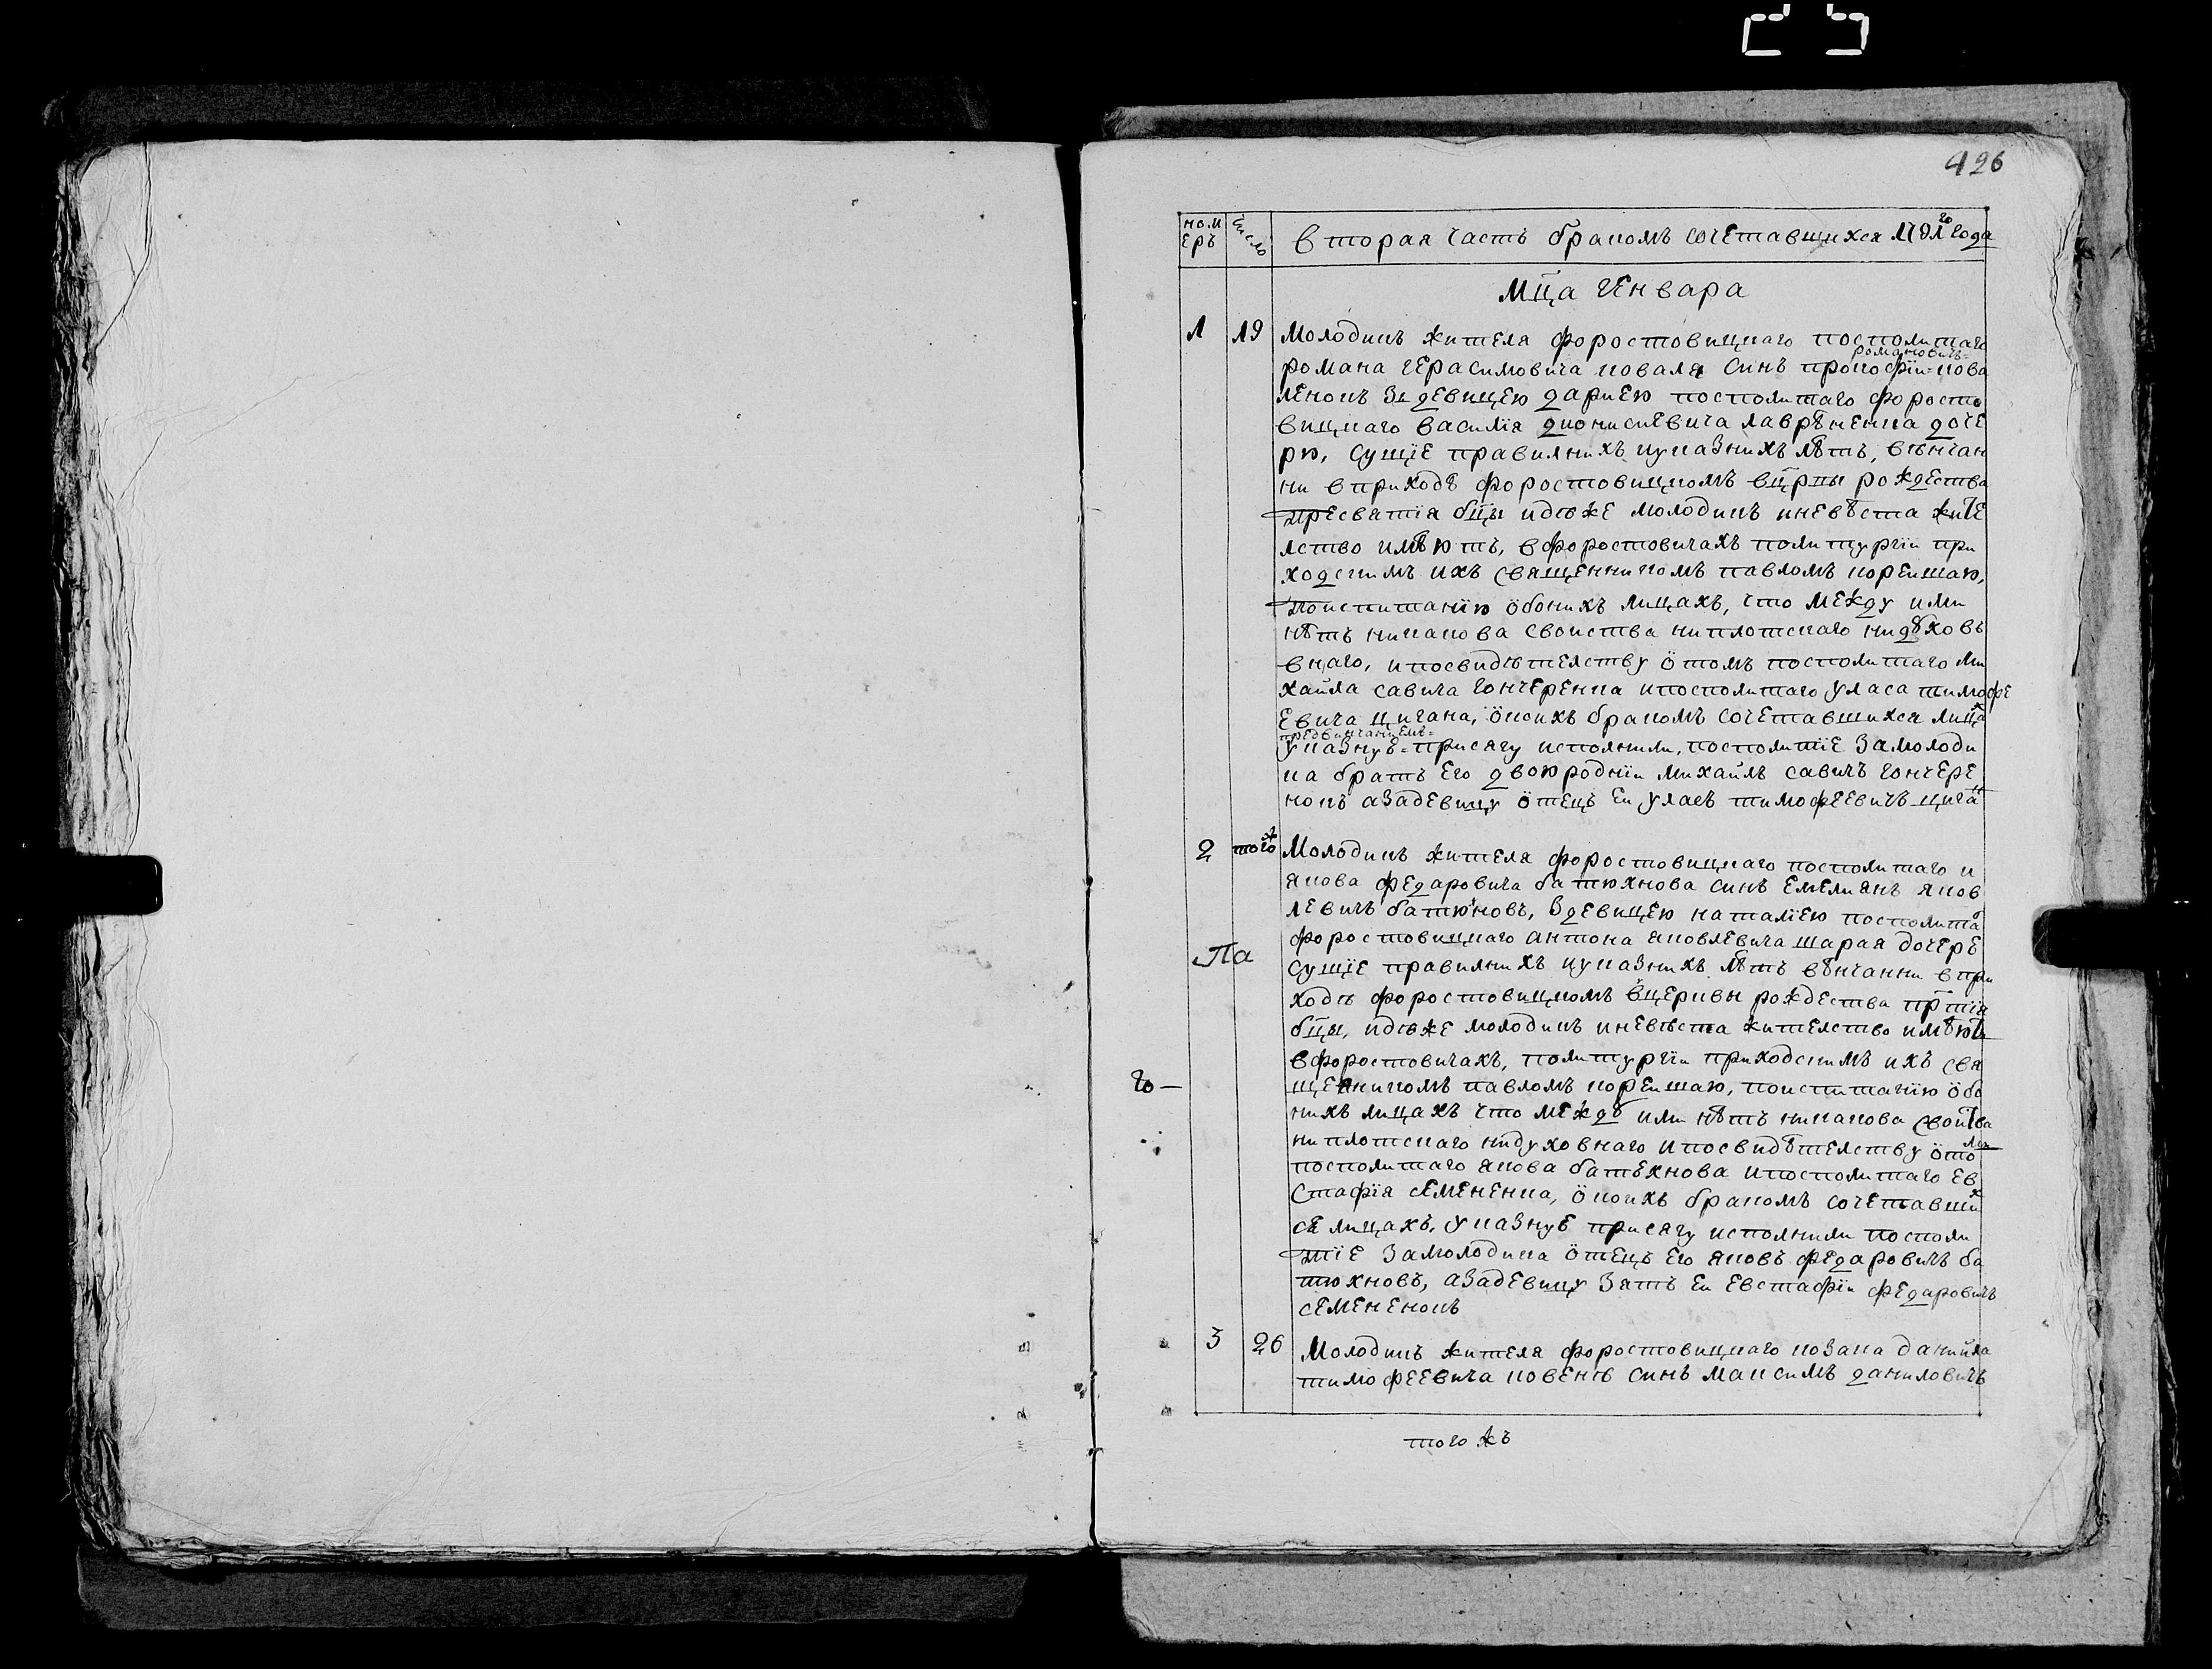 426
номеръ число вторая часть бракомъ сочетавшихся 1791го года
Мца Генвара
1 19 Молодикъ жителя форостовицкаго посполитаго
романа Герасимовича коваля Синъ прокофїи романовичъ кова
ленокъ Здевицею дариею посполитаго форосто
вицкаго василія дионисиевича лаврѣненка доче
рю, сущїе правилнихъ иуказнихъ лѣтъ, вѣнчан
ни вприходѣ форостовицкомъ вцркы рождества
пресвятїя бцы идѣже молодикъ иневѣста жите
лство имѣютъ, вфоростовичахъ политургїи при
ходскимъ ихъ священникомъ павломъ корешаю,
поиспитанїю обоихъ лицахъ, что между ими
нѣтъ никакова своиства ниплотскаго нидꙋховъ
внаго, ипосвидѣтелству отомъ посполитаго ми
хайла савича гончеренка ипосполитаго уласа тимофе
евича цигана, окоихъ бракомъ сочетавшихся лицахъ
предвинчаниемъ
указнуѣ присягу исполнили, посполитїе Замолоди
ка братъ Его двоюроднїи михаилъ савичъ гончере
нокъ азадевицу отецъ Еи уласъ тимофеевичъ циган
2 тогож Молодикъ жителя форостовицкаго посполитаго и
якова федаровича батюхнова синъ Емелиянъ яков
левичъ батюхновъ, Здевицею наталїею посполита
форостовицкаго антона яковлевича шарая дочере
Па
сущїе правилнихъ иуказнихъ лѣтъ вѣнчанни впри
ходѣ форостовицкомъ вцеркви рождества пртїя
бцы, идѣже молодикъ иневѣста жителство имѣютъ
вфоростовичахъ, политургїи приходскимъ ихъ свя
го— щенникомъ павломъ корешаю, поиспитанїю обо
нихъ лицахъ что междꙋ ими нѣтъ никакова своитва
ниплотскаго нидуховнаго ипосвидѣтелству отомъ
посполитаго якова батехнова ипосполитаго Ев
стафїя семененка, окоихъ бракомъ сочетавших
ся лицахъ, указнуѣ присягу исполнили посполи
тїе Замолодика отецъ Его яковъ федаровичъ ба
тюхновъ, азадевицу Зять Еи Евстафїи федаровичъ
семененокъ
3 26 Молодикъ жителя форостовицкаго козака данийла
тимофеевича ковенѣ синъ максимъ даниловичъ
того жъ